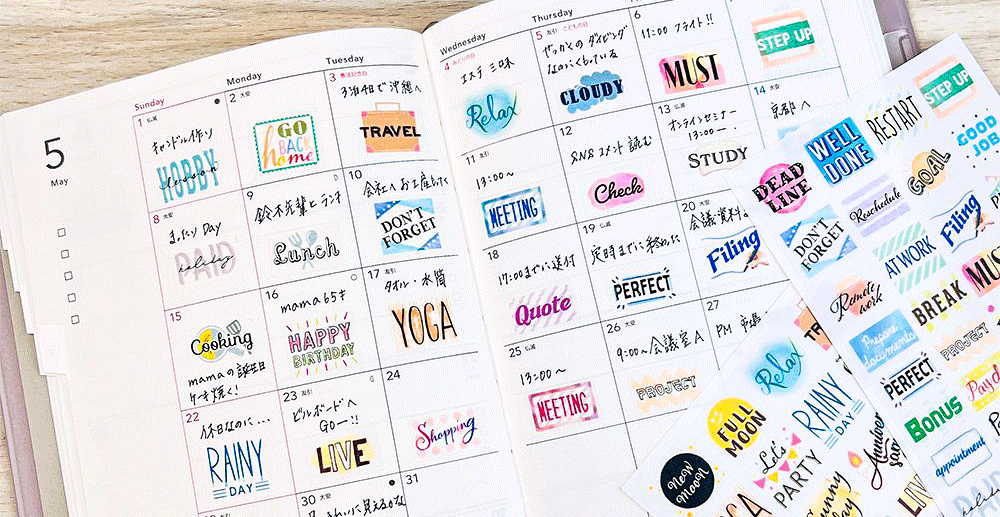 5
May
Sunday
Monday
Tuesday
Wednesday
Thursday
1 仏滅
キャンドル作り
HOBBY
lesson
2 大安
GO
BACK
home
3 憲法記念日
3泊4日で沖縄へ
TRAVEL
4 みどりの日
エステ三昧
Relax
5 友引 こどもの日
せっかくのダイビング
なのにくもっている
CLOUDY
6
11:00 フライト!!
MUST
STEP UP
8 大安
まったりDay
PAID
holiday
9
鈴木先輩とランチ
Lunch
10
会社へお土産もってく
DON'T
FORGET
11
13:00〜
MEETING
12
SNSコメント読む
Check
13 仏滅
オンラインセミナー
13:00〜
STUDY
14 大安
京都へ
15
Cooking
mamaの誕生日
ケーキ焼く!
16
mama 65才
HAPPY
BIRTHDAY
17 友引
タオル・水筒
YOGA
18
17:00までに送付
Quote
19 仏滅
定時までに終わった
PERFECT
20 大安
会議資料
Filing
22
休日なのに...
RAINY
DAY
23 友引
ビルボードへ
GO〜!!
LIVE
24
Shopping
25 仏滅
13:00〜
MEETING
26 大安
9:00〜会議室A
PROJECT
27
PM
30 大安
31
STEP UP
RESTART
WELL
DONE
GOOD
JOB
DEAD
LINE
GOAL
Reschedule
DON'T
FORGET
Filing
AT WORK
Remote
work
BREAK
MUS
Prepare
documents
PROJECT
PERFECT
Payd
Bonus
appointment
PAID
Relax
FULL
MOON
RAINY
DAY
Let's
PARTY
NEW
MOON
LIV